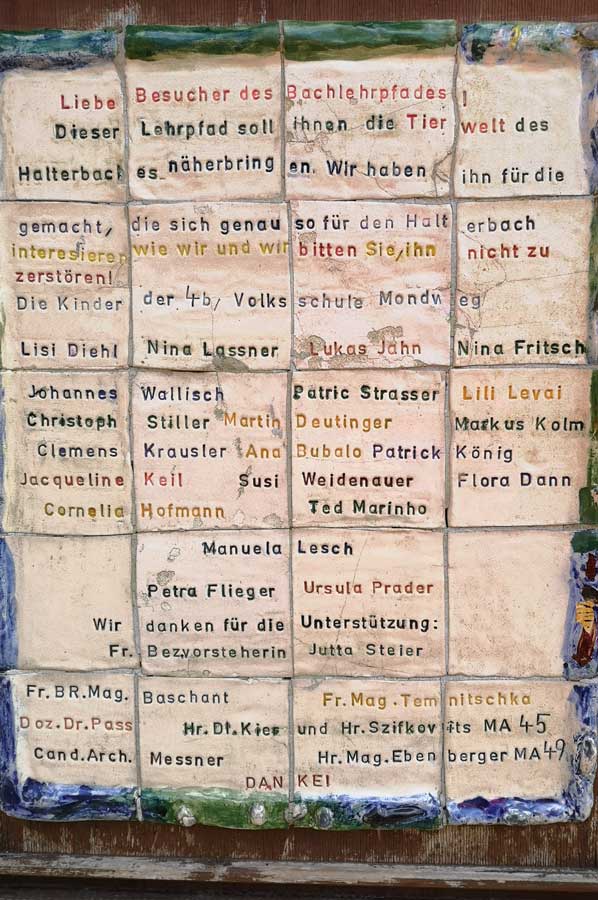 Liebe Besucher des Bachlehrpfades!
Dieser Lehrpfad soll ihnen die Tierwelt des
Halterbaches näherbringen. Wir haben ihn für die
gemacht, die sich genau so für den Halterbach
interessieren wie wir und wir bitten Sie, ihn nicht zu
zerstören!
Die Kinder der 4b, Volksschule Mondweg
Lisi Diehl Nina Lassner Lukas Jahn Nina Fritsch
Johannes Wallisch Patric Strasser Lili Levai
Christoph Stiller Martin Deutinger Markus Kolm
Clemens Krausler Ana Bubalo Patrick König
Jacqueline Keil Susi Weidenauer Flora Dann
Cornelia Hofmann Ted Marinho
Manuela Lesch
Petra Flieger Ursula Prader
Wir danken für die Unterstützung:
Fr. Bez.vorsteherin Jutta Steier
Fr.BR.Mag. Baschant Fr.Mag.Temnitschka
Doz.Dr.Pass Hr.DI.Kies und Hr.Szifkovits MA 45
Cand.Arch. Messner Hr.Mag.Ebenberger MA49
DANKE!